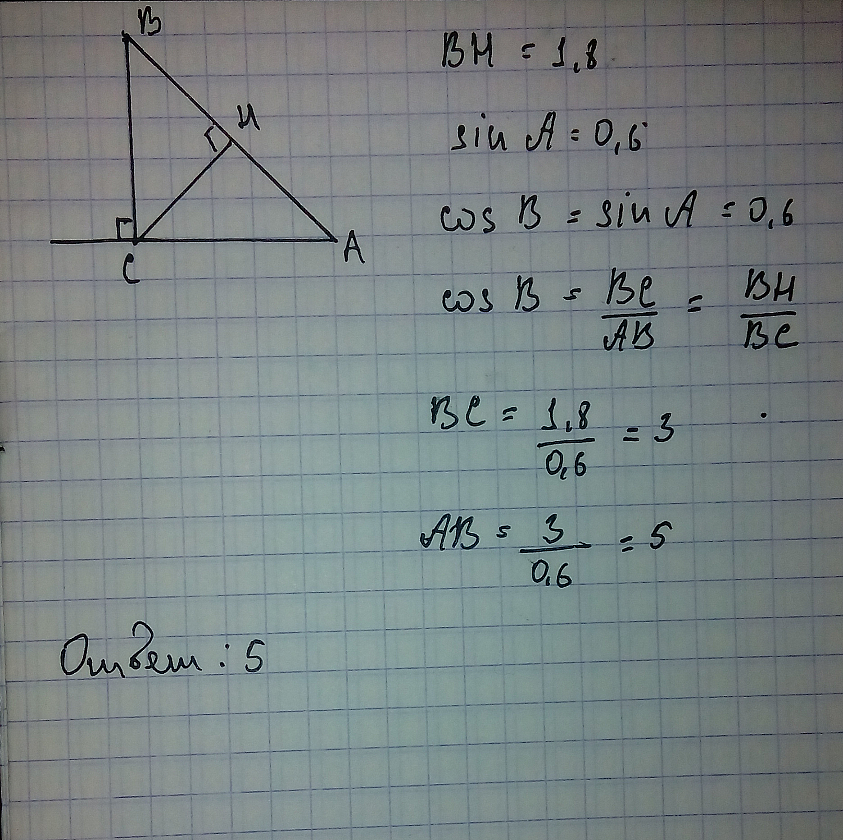 B
H
C
A
BH = 1,8
sin A = 0,6
cos B = sin A = 0,6
cos B = BC/AB = BH/BC
BC = 1,8/0,6 = 3
AB = 3/0,6 = 5
Ответ : 5